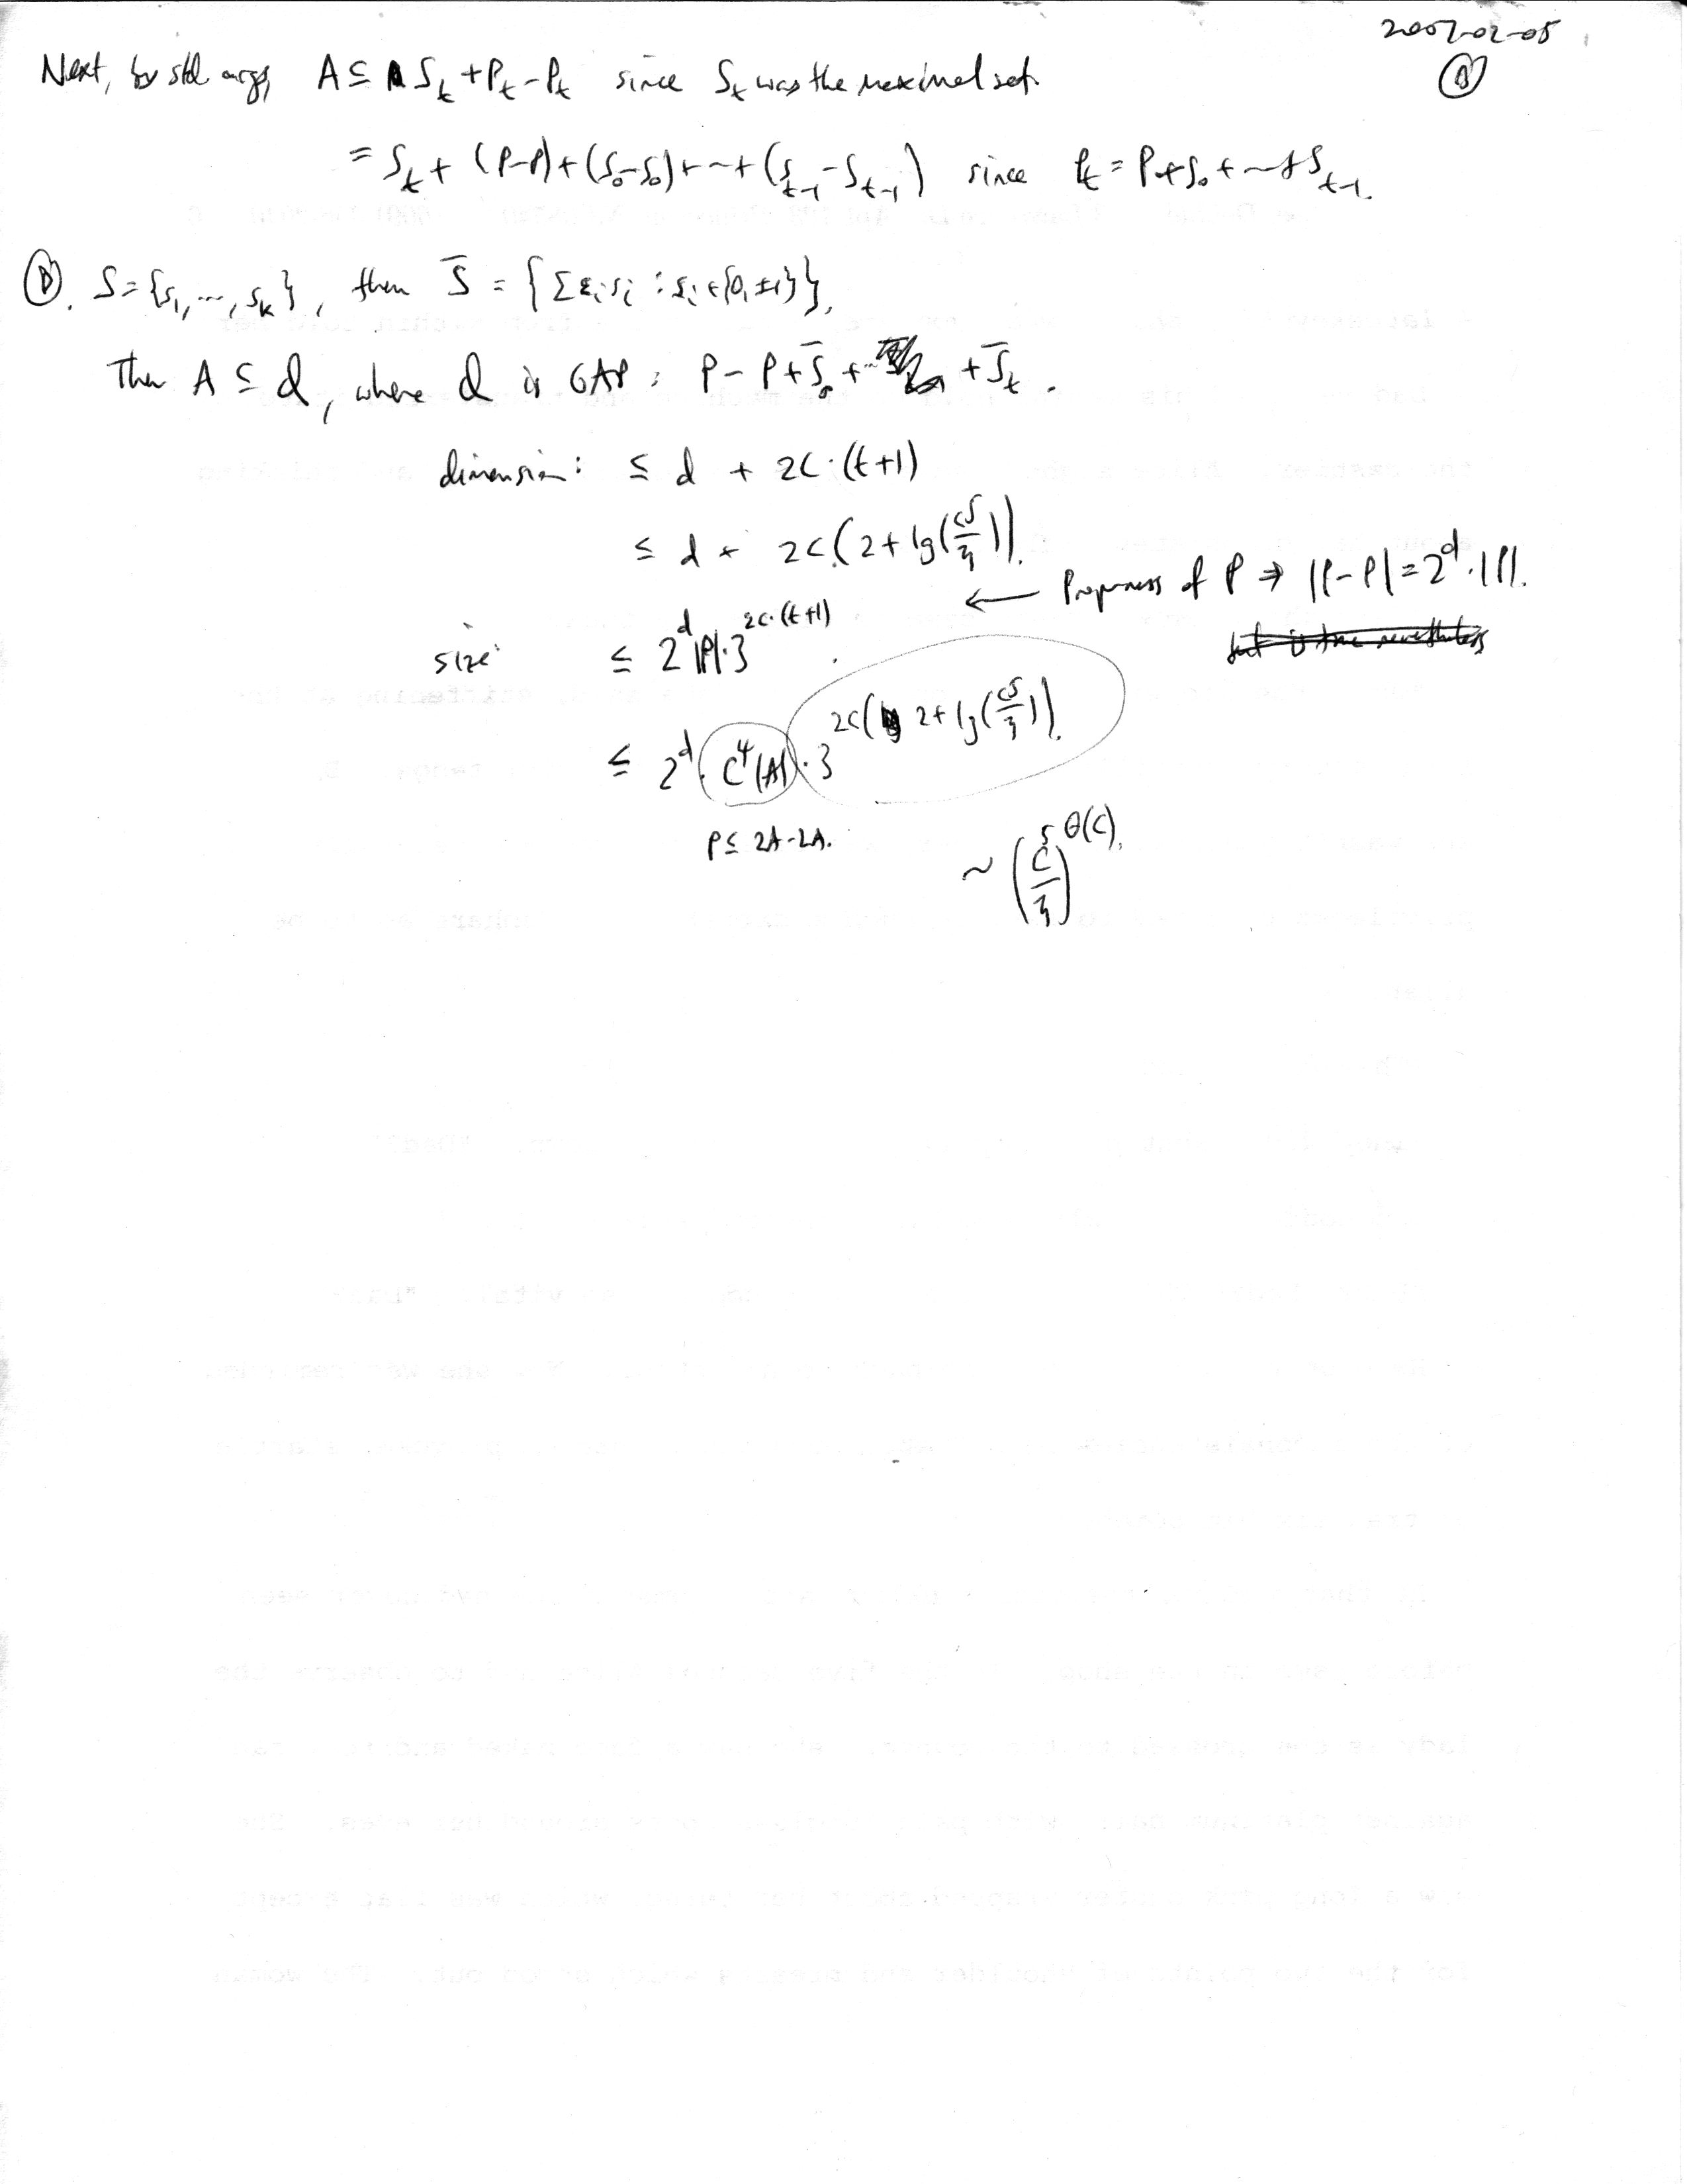 2007-02-05
⑧
Next, by std args, A ⊆ S_t + P_t - P_t since S_t was the maximal set.
= S_t + (P-P) + (S_0-S_0) + ⋯ + (S_{t-1} - S_{t-1}) since P_t = P + S_0 + ⋯ + S_{t-1}.
Ⓓ. S = {s_1, ⋯, s_k}, then S̄ = {Σ ε_i s_i : ε_i ∈ {0, ±1}}.
Then A ⊆ Q, where Q is GAP: P - P + S̄_0 + ⋯ + S̄_t.
dimension: ≤ d + 2C·(t+1)
≤ d + 2C·(2 + lg(C^5/η)).
← Properness of P ⇒ |P-P| = 2^d·|P|.
but is true nevertheless
size: ≤ 2^d |P|·3^{2C·(t+1)}.
≤ 2^d · C^4|A| · 3^{2C(2 + lg(C^5/η))}.
P ⊆ 2A-2A.
~ (C^5/η)^{Θ(C)}.